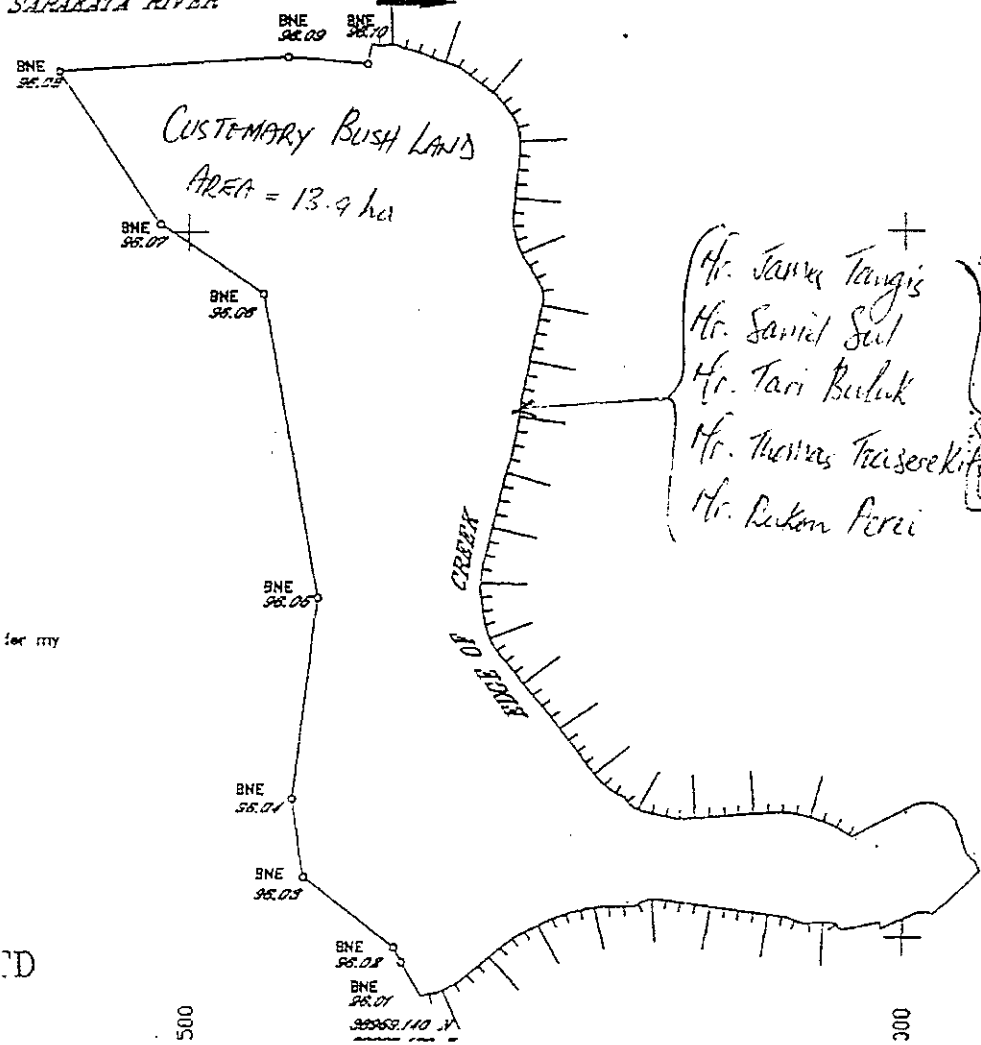 SARAKATA RIVER
BNE
96.09
BNE
96.10
BNE
CUSTEMARY BUSH LAND
AREA = 13.9 ha
BNE
96.07
BNE
96.06
Mr. James Tangis
Mr. Samil Sul
Mr. Tari Buluk
Mr. Thomas
Mr.
CREEK
EDGE OF
BNE
96.05
for my
BNE
96.04
BNE
96.03
BNE
96.02
BNE
96.01
500
000